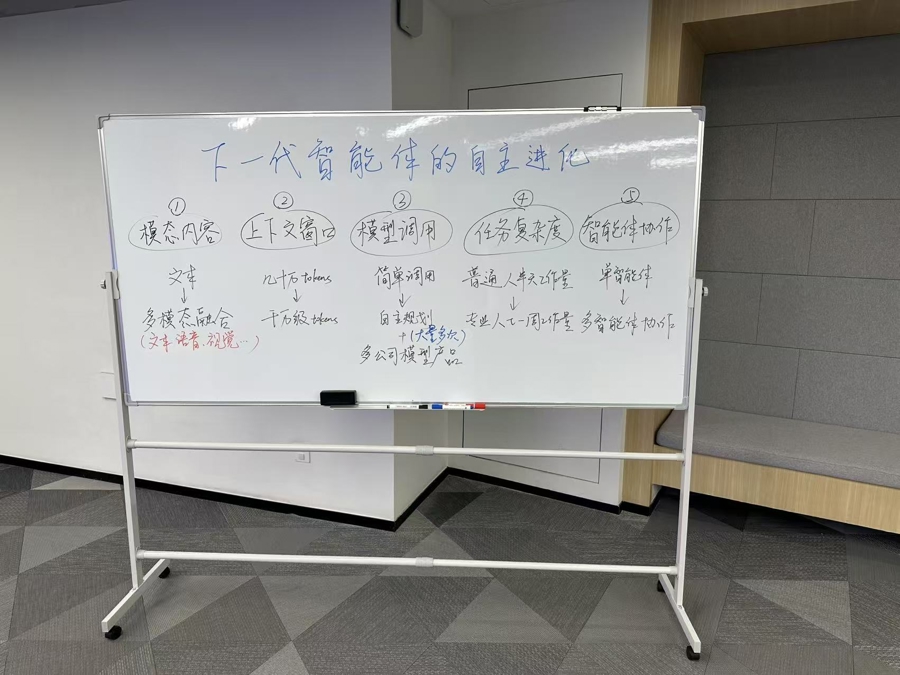 下一代智能体的自主进化
① ② ③ ④ ⑤
模态内容 上下文窗口 模型调用 任务复杂度 智能体协作
文本 几十万tokens 简单调用 普通人半天工作量 单智能体
↓ ↓ ↓ ↓ ↓
多模态融合 千万级tokens 自主规划 专业人士一周工作量 多智能体协作
(文本 语音、视觉…) +(大量多次)
多公司模型产品